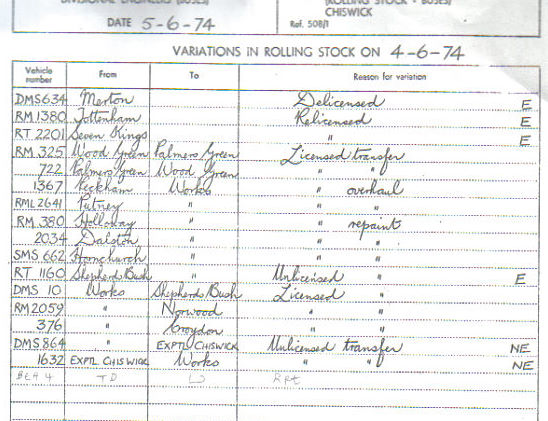 DIVISIONAL ENGINEERS (BUSES)
(ROLLING STOCK - BUSES)
CHISWICK
DATE 5-6-74 Ref. 508/1
VARIATIONS IN ROLLING STOCK ON 4-6-74
Vehicle number From To Reason for variation
DMS634 Merton Delicensed E
RM1380 Tottenham Relicensed E
RT 2201 Seven Kings " E
RM 325 Wood Green Palmers Green Licensed transfer
722 Palmers Green Wood Green " "
1367 Peckham Works " overhaul
RML2641 Putney " " "
RM 380 Holloway " " repaint
2034 Dalston " " "
SMS 662 Hornchurch " " "
RT 1160 Shepherds Bush " Unlicensed " E
DMS 10 Works Shepherds Bush Licensed "
RM2059 " Norwood " "
376 " Croydon " "
DMS864 " EXPTL CHISWICK Unlicensed transfer NE
1632 EXPTL CHISWICK Works " " NE
BEA 4 TD Rpt